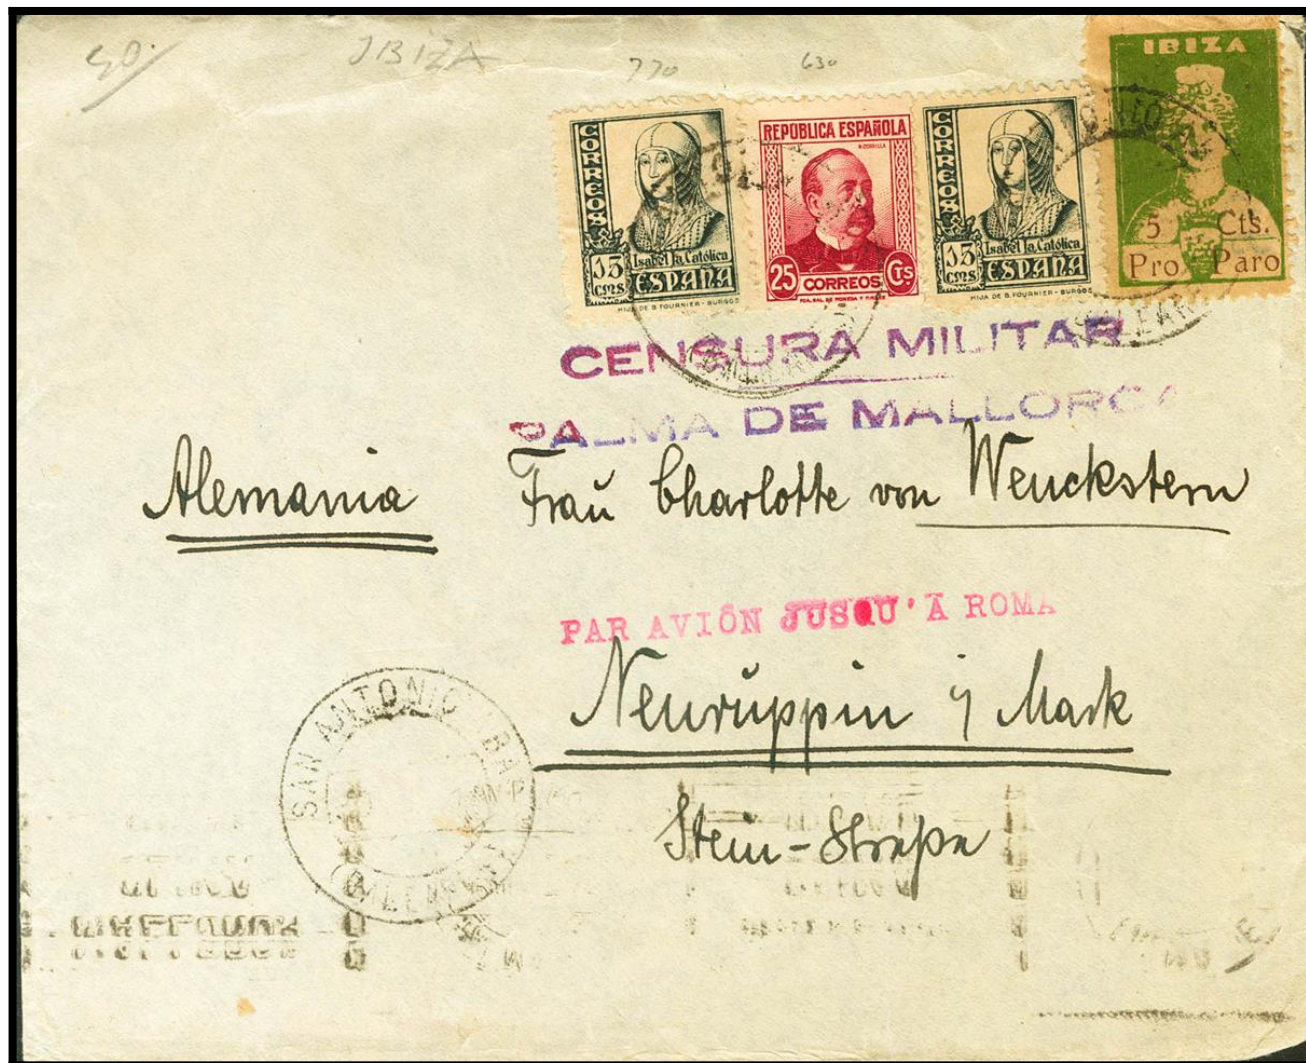 40/
IBIZA
770
630
CORREOS
15
CMS
Isabel la Católica
ESPAÑA
HIJA DE B. FOURNIER - BURGOS
REPÚBLICA ESPAÑOLA
25
CORREOS
CTS
CORREOS
15
CMS
Isabel la Católica
ESPAÑA
HIJA DE B. FOURNIER - BURGOS
IBIZA
5 Cts.
Pro Paro
CENSURA MILITAR
PALMA DE MALLORCA
Alemania
Frau Charlotte von Wenckstern
PAR AVIÓN JUSQU'A ROMA
Neuruppin i/ Mark
Stein-Straße
SAN ANTONIO